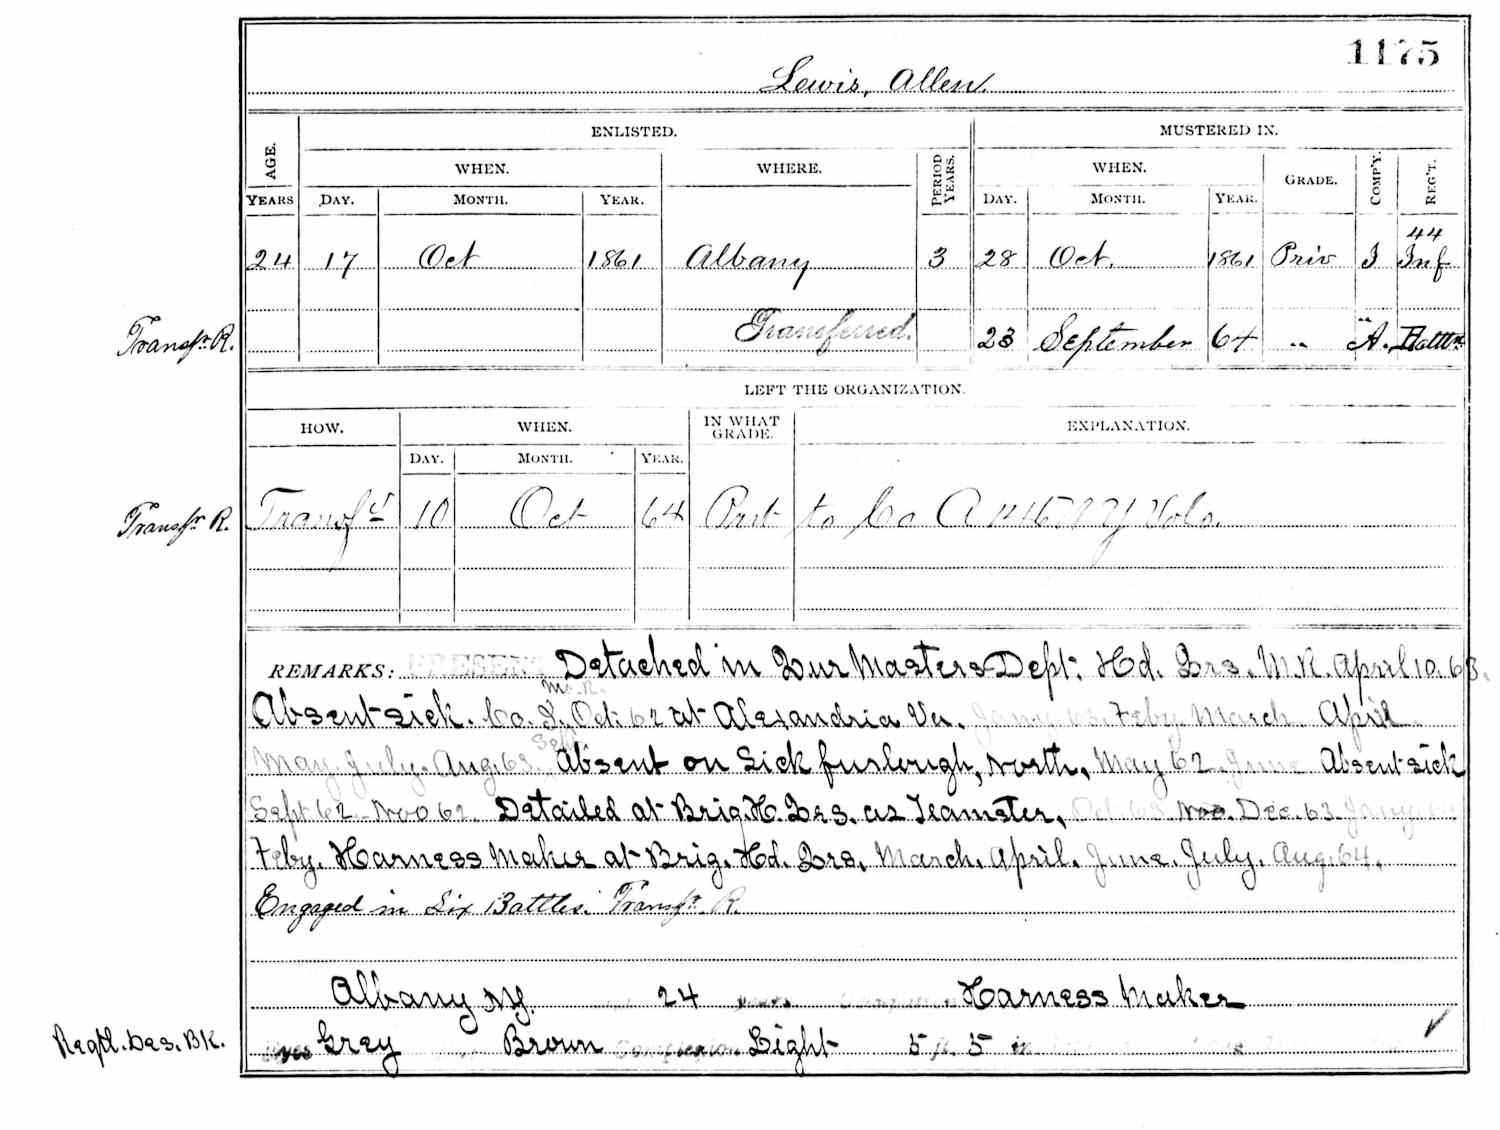 1175
Lewis, Allen.
ENLISTED. MUSTERED IN.
AGE. WHEN. WHERE. PERIOD YEARS. WHEN. GRADE. COMP'Y. REG'T.
YEARS DAY. MONTH. YEAR. DAY. MONTH. YEAR.
44
24 17 Oct 1861 Albany 3 28 Oct. 1861 Priv I Inf
Transfr. R. Transferred. 23 September 64 " A. Battn
LEFT THE ORGANIZATION.
HOW. WHEN. IN WHAT GRADE. EXPLANATION.
DAY. MONTH. YEAR.
Transf. R. Transfd 10 Oct 64 Pvt to Co A 146 N Y Vols.
REMARKS: PRESENT Detached in Qur Masters Dept: Hd. Qrs. M.R. April 10. 63.
M.R.
Absent sick. Co. I. Oct. 62 at Alexandria Va. Jany. 63. Feby. March. April.
Sept.
May. July. Aug. 63. Absent on Sick furlough, North, May 62. June Absent sick
Sept 62. Nov 62. Detailed at Brig. H. Qrs. as Teamster, Oct. 63. Nov. Dec. 63. Jany. 64
Feby. Harness Maker at Brig. Hd. Qrs. March. April. June. July. Aug. 64.
Engaged in Six Battles. Transfr. R.
Albany N.Y. 24 Harness Maker
Regtl. Des. BK. Eyes Grey Brown Complexion Light 5 ft. 5 in